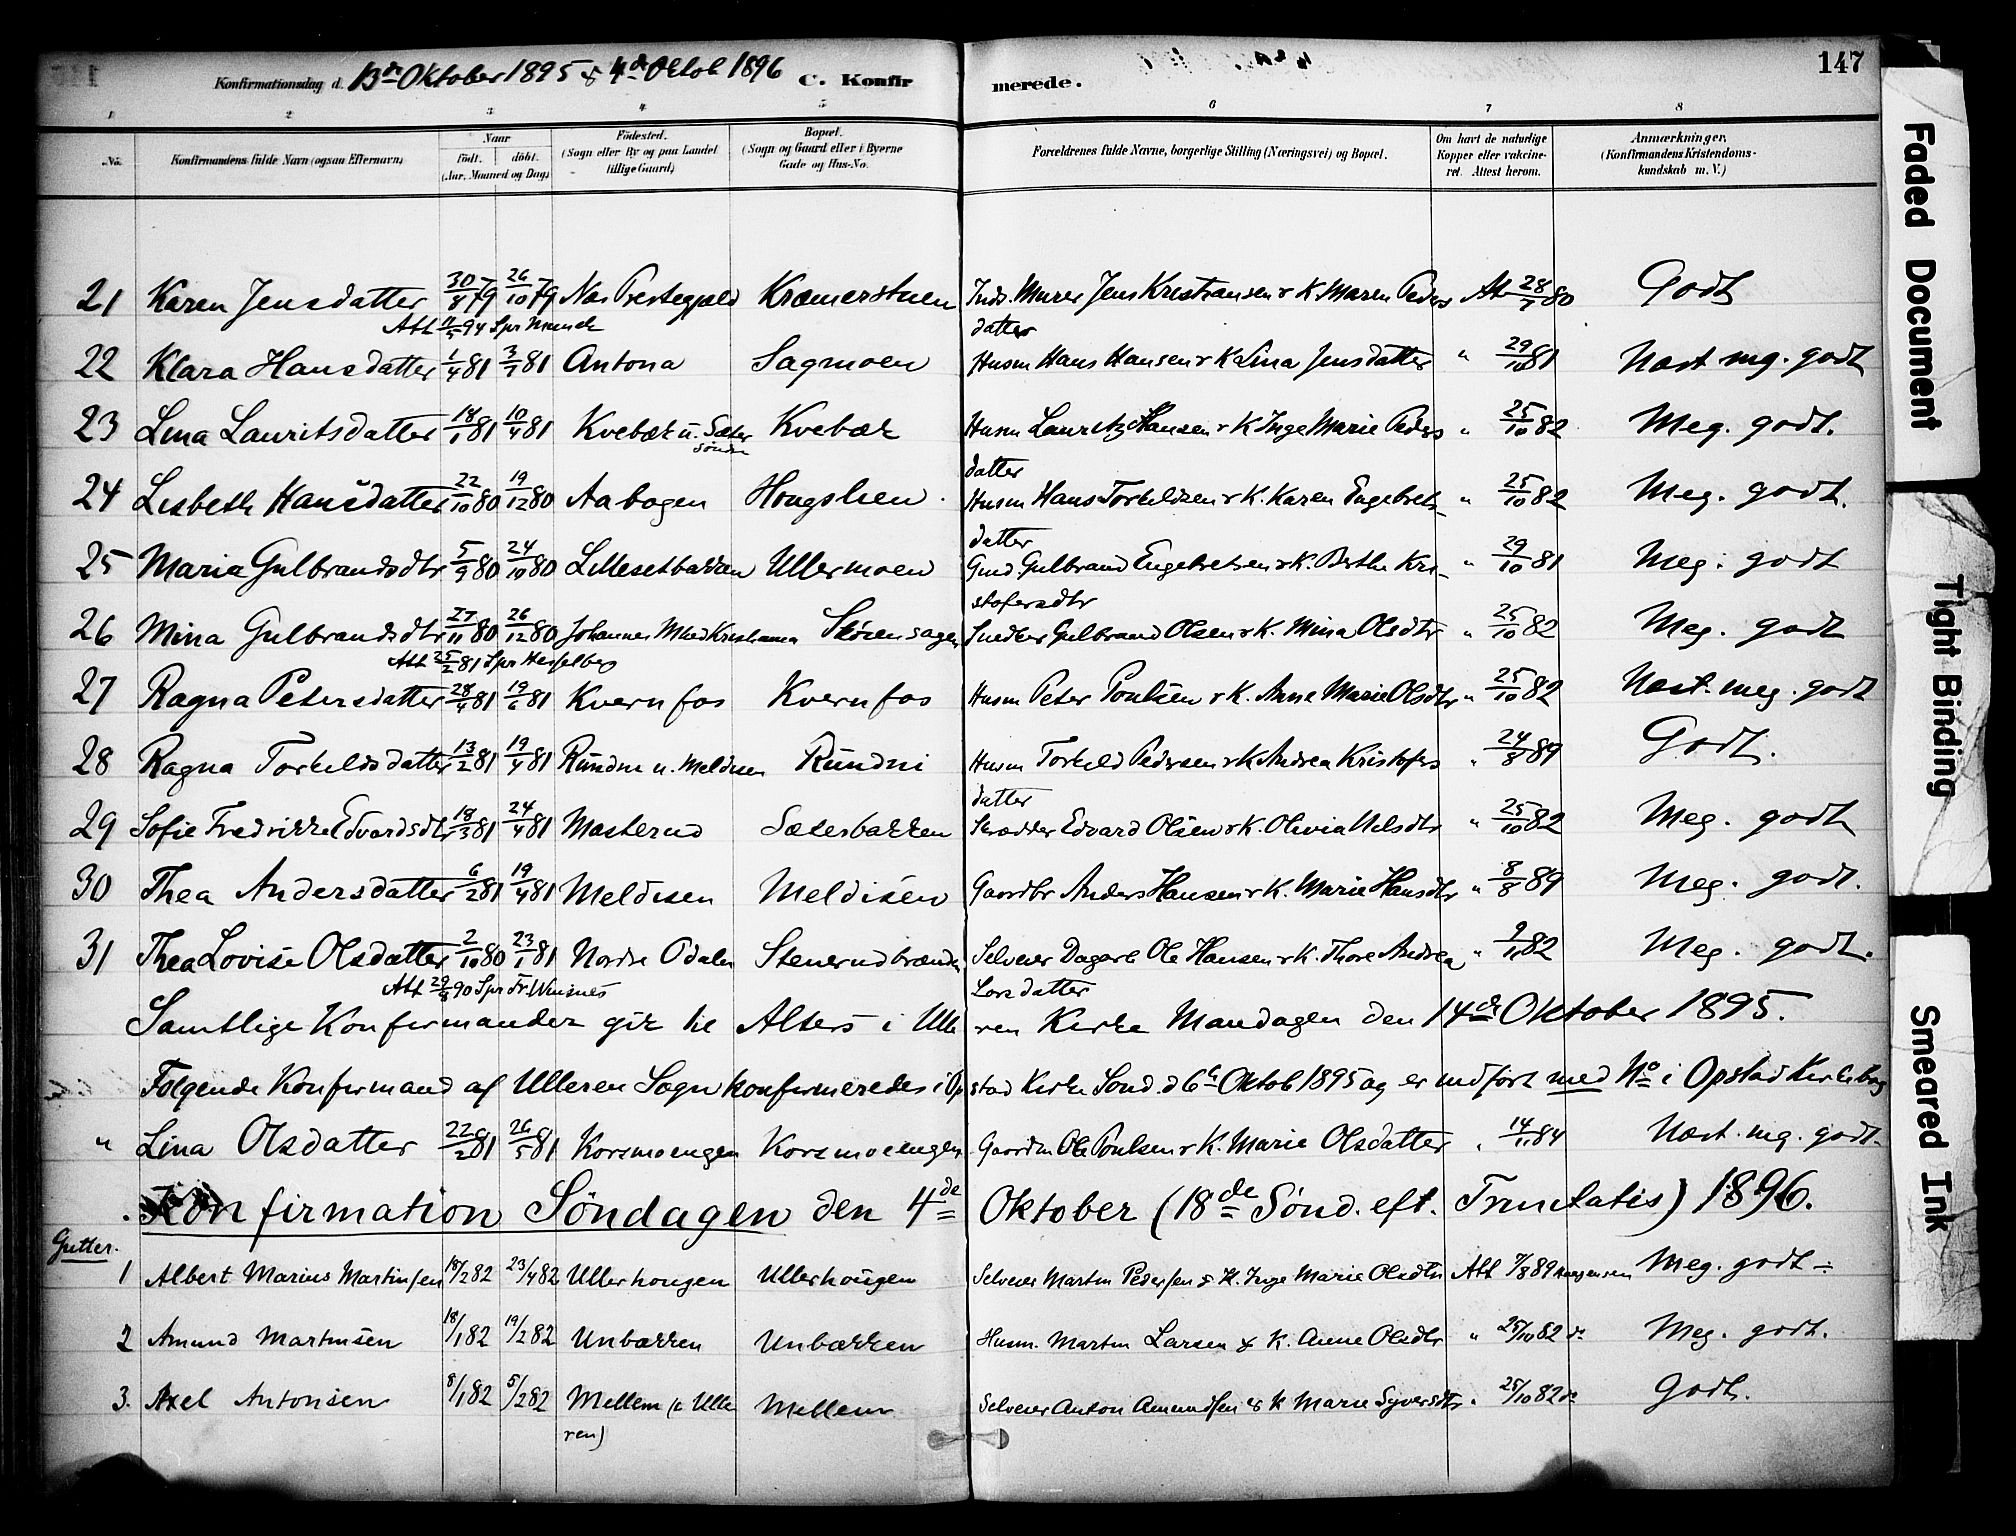 147
Konfirmationsdag d. 13de Oktober 1895 & 4de Oktob 1896 C. Konfirmerede.
1 2 3 4 5 6 7 8
No. Konfirmandens fulde Navn (ogsaa Efternavn) Naar født. døbt. (Aar, Maaned og Dag) Fødested. (Sogn eller By og paa Landet tillige Gaard) Bopæl. (Sogn og Gaard eller i Byerne Gade og Hus-No. Forældrenes fulde Navne, borgerlige Stilling (Næringsvei) og Bopæl. Om havt de naturlige Kopper eller vakcineret. Attest herom. Anmærkninger. (Konfirmandens Kristendomskundskab m. V.)
21 Karen Jensdatter 30/8 79 26/10 79 Næs Prestegjæld Kræmerstuen Inds. Murer Jens Kristiansen & K. Maren Peders At 28/ 80 Godt
Att 94 Spr Munch datter
22 Klara Hansdatter 1/4 81 3/7 81 Antona Sagmoen Husm Hans Hansen & K Lina Jensdatter " 29/10 81 Næst mg. godt
23 Lina Lauritsdatter 18/1 81 10/4 81 Kvebæk u. Sæter Søndre Kvebæk Husm Lauritz Hansen & K Inge Marie Peders " 25/10 82 Meg. godt.
datter
24 Lisbeth Hansdatter 22/10 80 19/12 80 Aabogen Hougslien. Husm Hans Torkildsen & K. Karen Engebrets- " 25/10 82 Meg. godt.
datter
25 Maria Gulbrandsdtr 5/9 80 24/10 80 Lillesetbakken Ullermoen Gmd. Gulbrand Engebretsen & K. Berthe Kri- " 29/10 81 Meg. godt
stofersdtr
26 Mina Gulbrandsdtr 27/11 80 26/12 80 Johannes Mked Kristiania Skörensagen Snedker Gulbrand Olsen & K. Mina Olsdtr " 25/10 82 Meg. godt
Att 25/2 81 Spr Hesselberg
27 Ragna Petersdatter 28/4 81 19/6 81 Kvernfos Kvernfos Husm Peter Poulsen & K. Anne Marie Olsdtr " 25/10 82 Næst. meg. godt
28 Ragna Torkeldsdatter 13/2 81 19/4 81 Rundni u. Meldisen Rundni Husm Torkeld Pedersen & K Andrea Kristofers " 24/8 89 Godt.
datter
29 Sofie Fredrikke Edvardsdtr 18/3 81 24/4 81 Masterud Sæterbakken Skrædder Edvard Olsen & K. Olivia Nelsdtr " 25/10 82 Meg. godt
30 Thea Andersdatter 6/2 81 19/4 81 Meldisen Meldisen Gaardbr Anders Hansen & K. Marie Hansdtr " 8/8 89 Meg. godt.
31 Thea Lovise Olsdatter 2/10 80 23/1 81 Nordre Odalen Stenerudbrænden Selveier Dagarb Ole Hansen & K. Thore Andrea " 82 Meg. godt.
Att 29/8 90 Spr Fr. Winsnes Larsdatter
Samtlige Konfirmander gik til Alters i Ulleren Kirke Mandagen den 14de Oktober 1895.
Følgende Konfirmand af Ulleren Sogn konfirmeredes i Opstad Kirke Sønd. d 6te Oktob 1895 og er indført med No i Opstad Kirkebog
" Lina Olsdatter 22/2 81 26/5 81 Korsmoengen Korsmoengen Gaardm Ole Poulsen & K. Marie Olsdatter " 14/11 84 Næst. mg. godt.
Konfirmation Söndagen den 4de Oktober (18de Sønd. eft. Trinitatis) 1896.
Gutter.
1 Albert Marius Martinsen 18/2 82 23/4 82 Ullerhougen Ullerhougen Selveier Martin Pedersen & K. Inge Marie Olsdtr Att 7/8 89 Meg. godt ÷
2 Amund Martinsen 18/1 82 19/2 82 Unbakken Unbakken Husm. Martin Larsen & K. Anne Olsdtr " 25/10 82 do Meg. godt.
3. Axel Antonsen 8/1 82 5/2 82 Mellem (i Ulle Mellem Selveier Anton Amundsen & K Marie Syversdtr " 25/10 82 do Godt.
ren)
Faded Document
Tight Binding
Smeared Ink